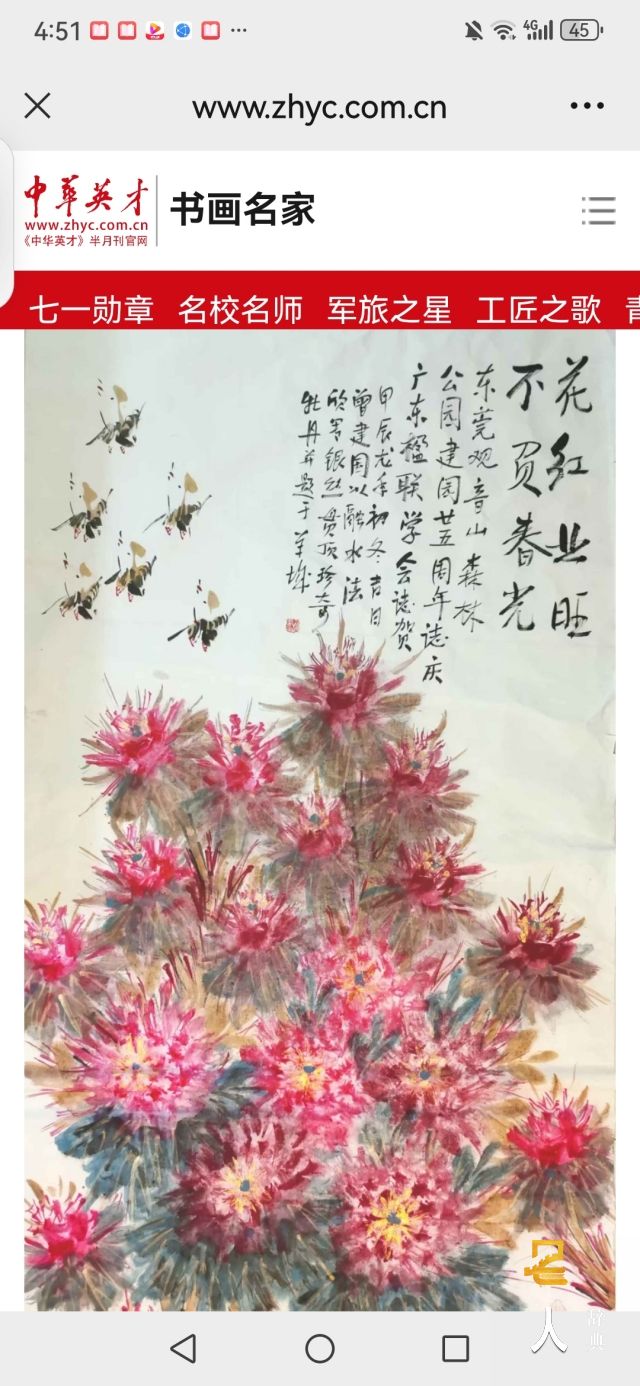 4:51
4G
45
www.zhyc.com.cn
中華英才
www.zhyc.com.cn
《中华英才》半月刊官网
书画名家
七一勋章 名校名师 军旅之星 工匠之歌 青
花红业旺
不负春光
东莞观音山森林
公园建园廿五周年誌庆
广东楹联学会誌贺
甲辰龙年初冬吉日
曾建国以融水法
欣写银丝贯顶珍奇
牡丹并题于羊城
名人
辞典